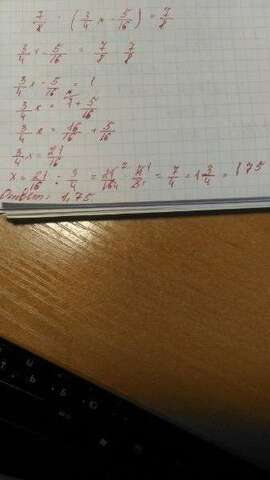 7/8 : (3/4 x - 5/16) = 7/8
3/4 x - 5/16 = 7/8 : 7/8
3/4 x - 5/16 = 1
3/4 x = 1 + 5/16
3/4 x = 16/16 + 5/16
3/4 x = 21/16
x = 21/16 : 3/4 = 21/16 · 4/3 = 7/4 = 1 3/4 = 1,75
Ответ: 1,75.